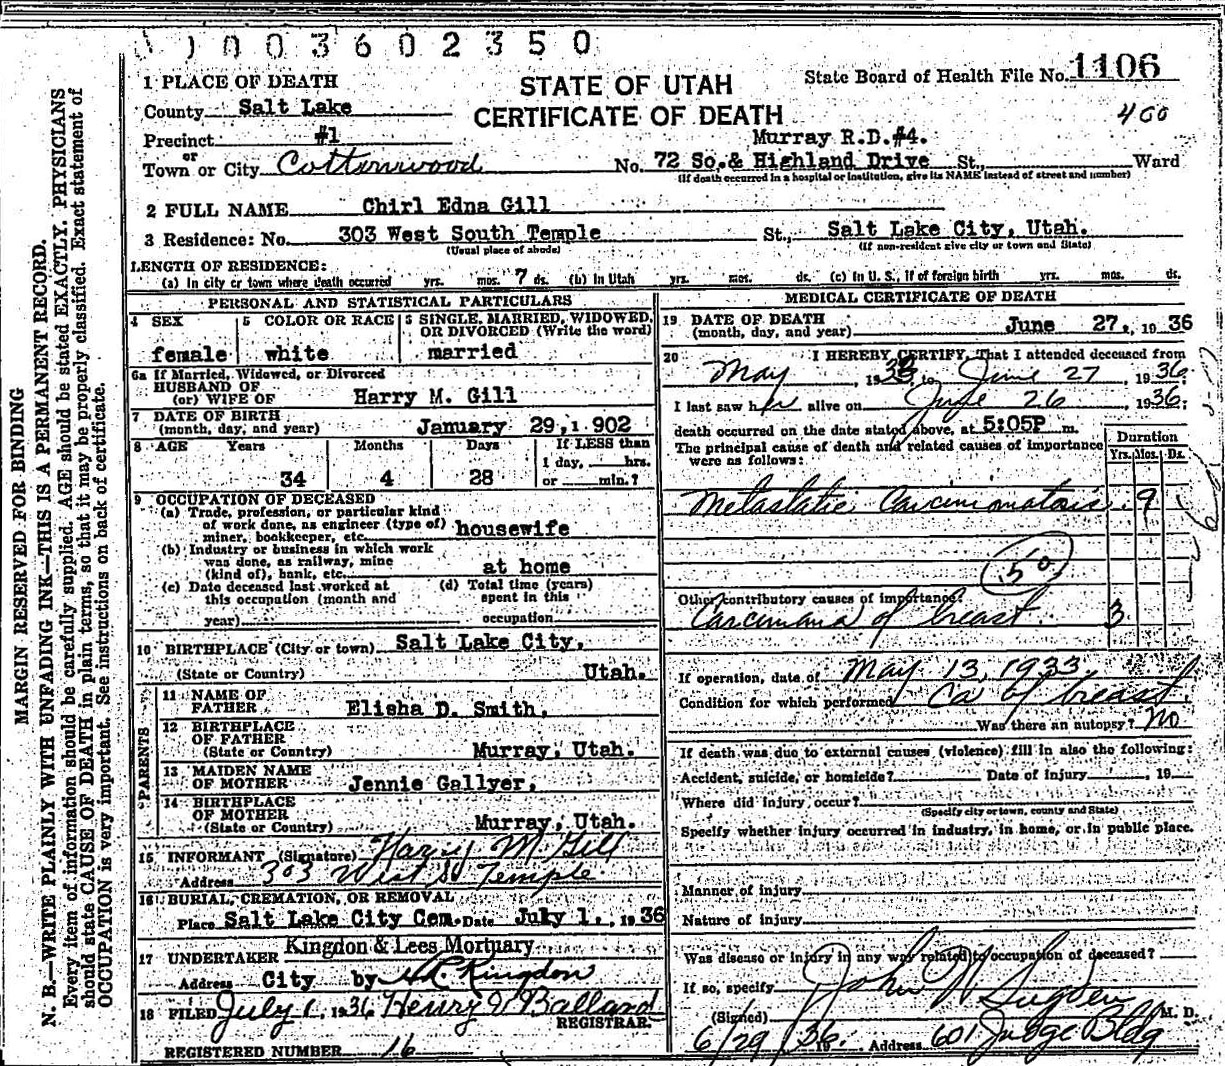 1003602350
1 PLACE OF DEATH
STATE OF UTAH
CERTIFICATE OF DEATH
State Board of Health File No. 1106
400
County Salt Lake
Precinct #1
Murray R.D.#4.
or
Town or City Cottonwood No. 72 So. & Highland Drive St., Ward
(If death occurred in a hospital or institution, give its NAME instead of street and number)
2 FULL NAME Chirl Edna Gill
3 Residence: No. 303 West South Temple St., Salt Lake City, Utah.
(Usual place of abode) (If non-resident give city or town and State)
LENGTH OF RESIDENCE:
(a) In city or town where death occurred yrs. mos. 7 ds. (b) In Utah yrs. mos. ds. (c) In U. S., if of foreign birth yrs. mos. ds.
PERSONAL AND STATISTICAL PARTICULARS
4 SEX
female
5 COLOR OR RACE
white
5 SINGLE, MARRIED, WIDOWED,
OR DIVORCED (Write the word)
married
6a If Married, Widowed, or Divorced
HUSBAND OF
(or) WIFE OF Harry M. Gill
7 DATE OF BIRTH
(month, day, and year) January 29, 1902
8 AGE Years Months Days If LESS than
1 day, hrs.
34 4 28 or min.?
9 OCCUPATION OF DECEASED
(a) Trade, profession, or particular kind
of work done, as engineer (type of)
miner, bookkeeper, etc. housewife
(b) Industry or business in which work
was done, as railway, mine
(kind of), bank, etc. at home
(c) Date deceased last worked at (d) Total time (years)
this occupation (month and spent in this
year) occupation
10 BIRTHPLACE (City or town) Salt Lake City,
(State or Country) Utah.
PARENTS
11 NAME OF
FATHER Elisha D. Smith,
12 BIRTHPLACE
OF FATHER
(State or Country) Murray, Utah.
13 MAIDEN NAME
OF MOTHER Jennie Gallyer,
14 BIRTHPLACE
OF MOTHER
(State or Country) Murray, Utah.
15 INFORMANT (Signature) Harry M Gill
Address 303 West So Temple
16 BURIAL, CREMATION, OR REMOVAL
Place Salt Lake City Cem. Date July 1, 1936
Kingdon & Lees Mortuary
17 UNDERTAKER
Address City by Kingdon
18 FILED July 1, 1936 Henry Ballard
REGISTRAR.
REGISTERED NUMBER 16
MEDICAL CERTIFICATE OF DEATH
19 DATE OF DEATH
(month, day, and year) June 27, 1936
20 I HEREBY CERTIFY, That I attended deceased from
May , 193 , to June 27 , 1936
I last saw her alive on June 26 , 1936;
death occurred on the date stated above, at 5:05P m.
The principal cause of death and related causes of importance
were as follows:
Duration
Yrs. Mos. Ds.
Metastatic Carcinomatosis 9
50
Other contributory causes of importance:
Carcinoma of breast. 3
If operation, date of May 13, 1933
Condition for which performed Ca of breast
Was there an autopsy? No
If death was due to external causes (violence) fill in also the following:
Accident, suicide, or homicide? Date of injury , 19
Where did injury occur?
(Specify city or town, county and State)
Specify whether injury occurred in industry, in home, or in public place.
Manner of injury
Nature of injury
Was disease or injury in any way related to occupation of deceased?
If so, specify
(Signed) John W Sugden M. D.
6/29 1936 Address 601 Judge Bldg
MARGIN RESERVED FOR BINDING
N. B.—WRITE PLAINLY WITH UNFADING INK—THIS IS A PERMANENT RECORD.
Every item of information should be carefully supplied. AGE should be stated EXACTLY. PHYSICIANS
should state CAUSE OF DEATH in plain terms, so that it may be properly classified. Exact statement of
OCCUPATION is very important. See instructions on back of certificate.